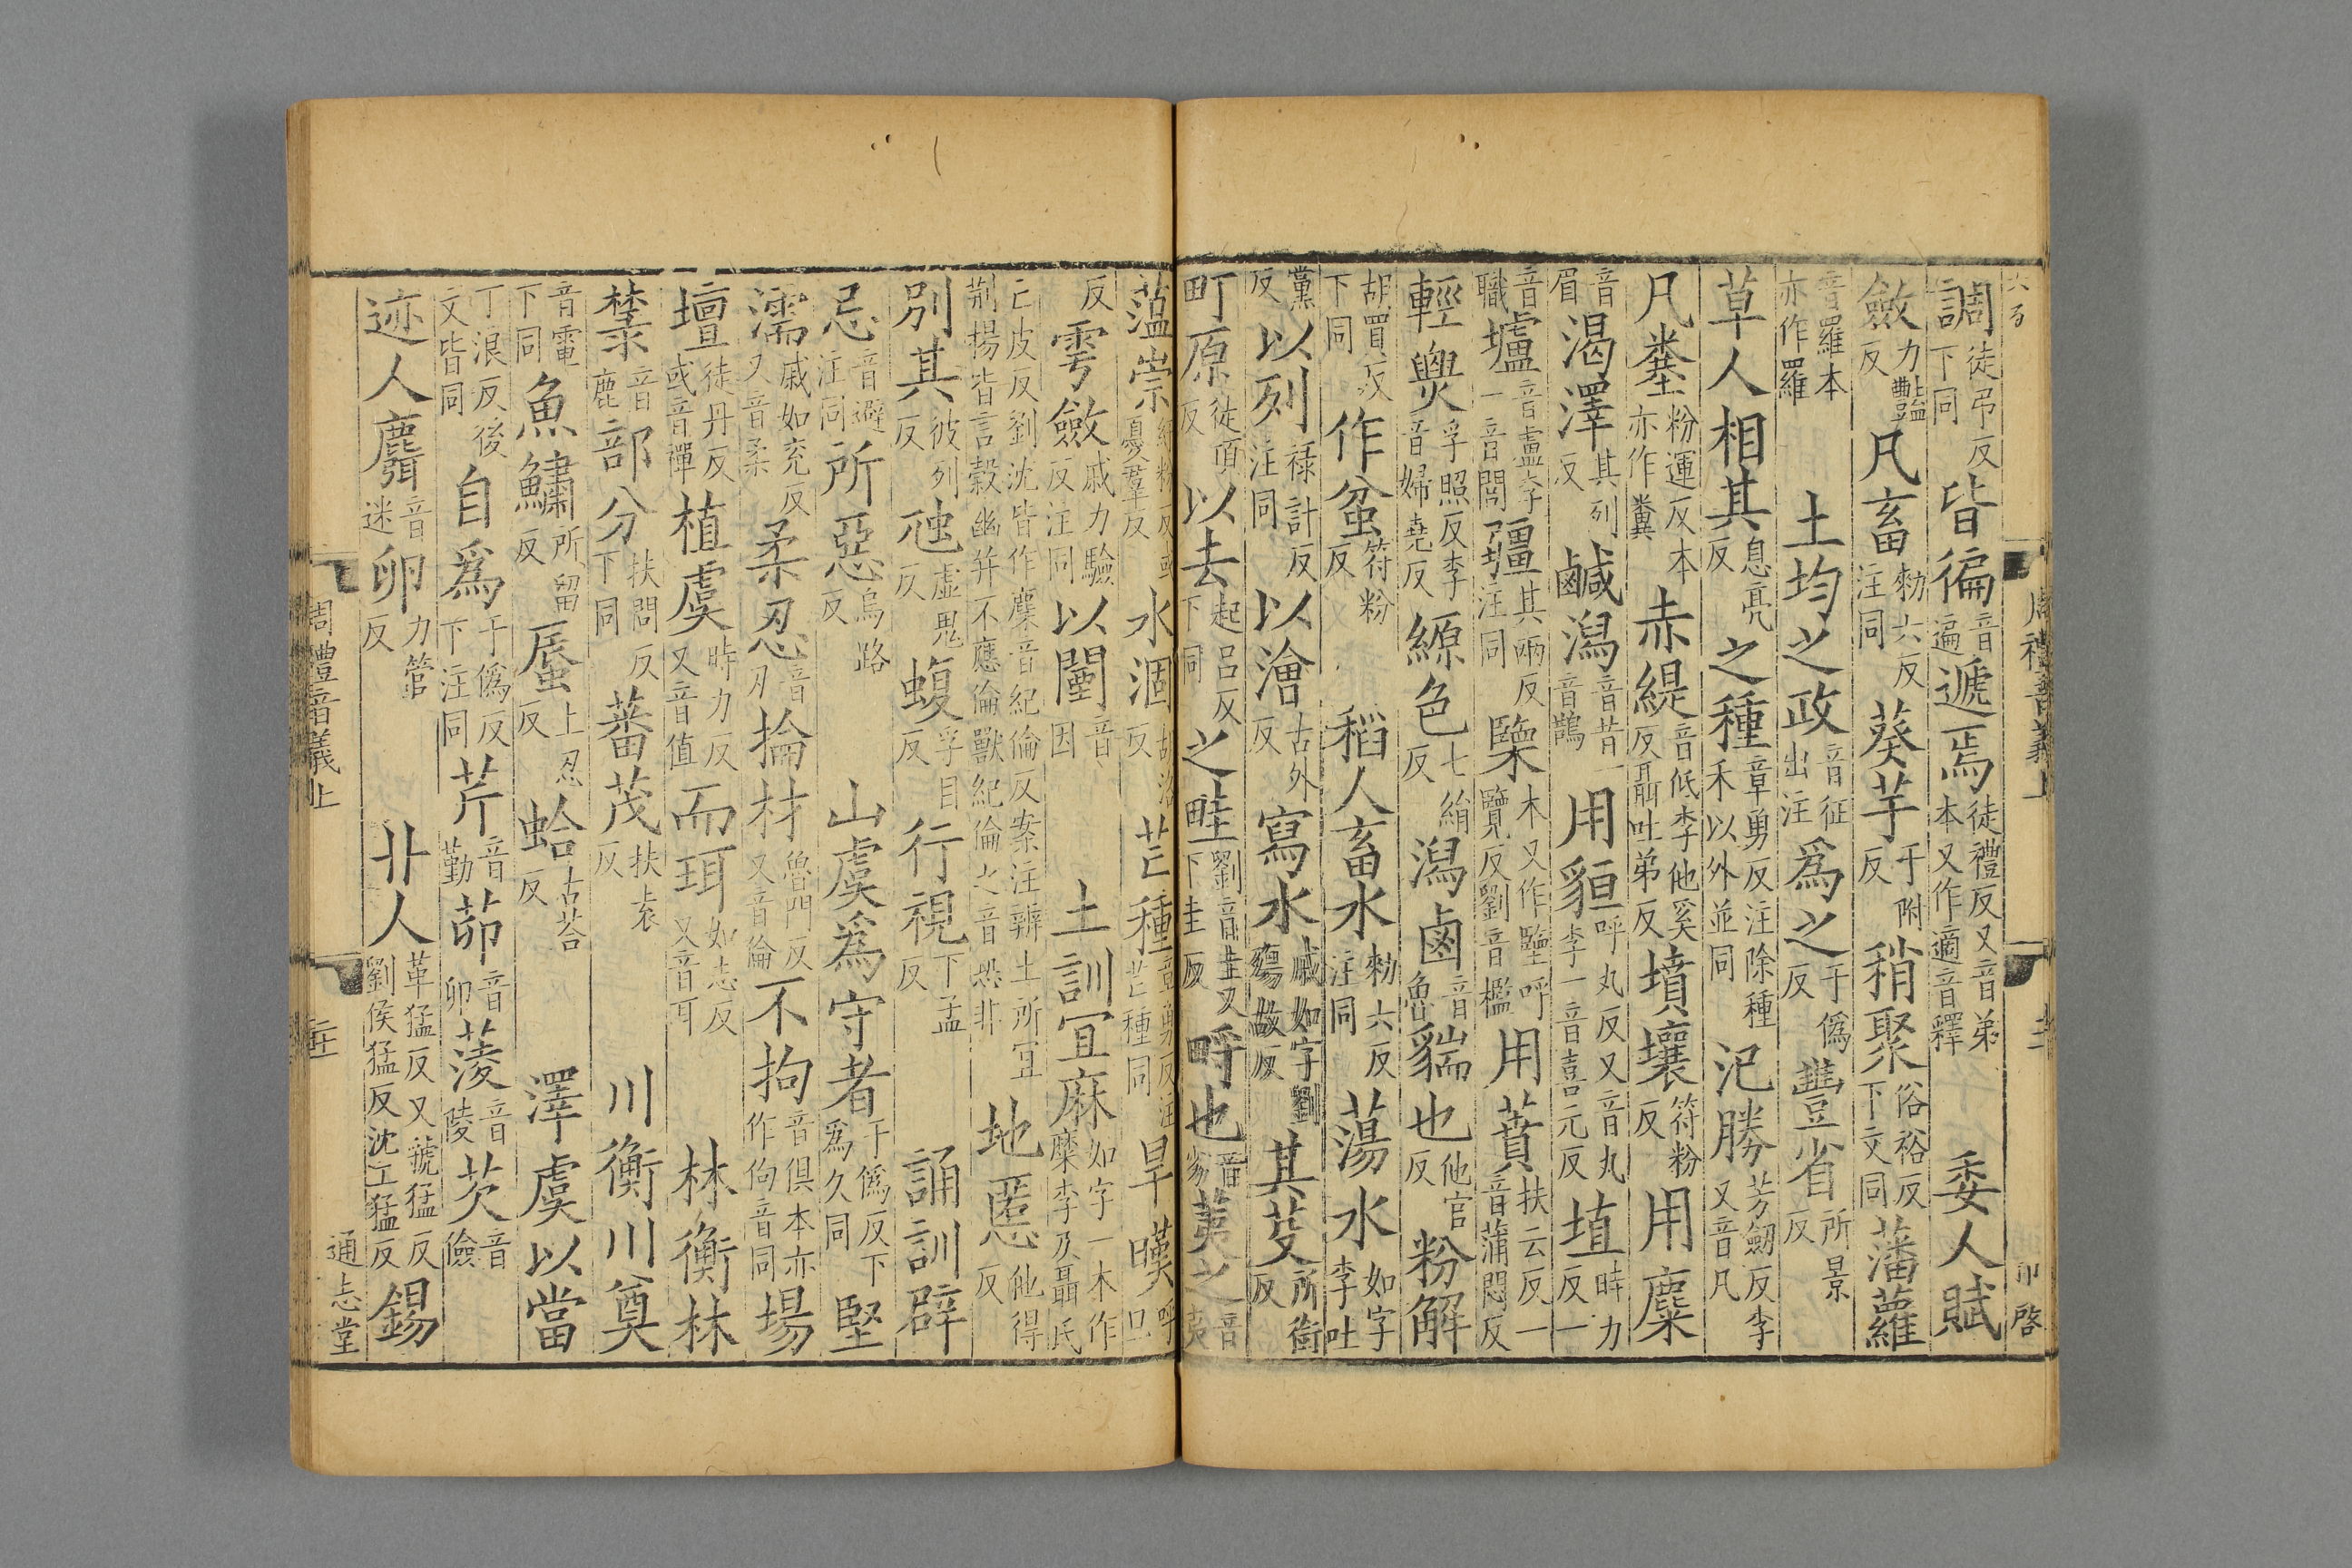 調徒弔反下同皆徧音遍遞焉徒禮反又音弟本又作適音釋 委人賦
斂力豔反凡畜勑六反注同葵芋于附反稍聚俗裕反下文同藩蘿
音羅本亦作羅 土均之政音征出注爲之于僞反豐省所景反
草人相其息亮反之種章勇反注除種禾以外並同氾勝芳劒反李又音凡
凡糞粉運反本亦作糞赤緹音低李他奚反聶吐弟反墳壤符粉反用麋
音眉渴澤其列反鹹潟音昔一音鵲用貆呼丸反又音丸李一音喜元反埴時力反一
音職壚音盧李一音閭彊其㒳反注同檃木又作壏呼覽反劉音檻用蕡扶云反一音蒲悶反
輕㷼孚照反李音婦堯反縓色七絹反潟鹵音魯貒也他官反粉解
胡買反下同作坌符粉反 稻人畜水勑六反注同蕩水如字李吐
黨反以列祿計反注同以澮古外反寫水戚如字劉殤故反其芟所銜反
町原徒頂反以去起呂反下同之畦劉音圭又下圭反㽯也音豸荑之音夷
薀崇紆粉反或憂羣反水涸胡洛反芒種章勇反注芒種同旱暵呼旦
反雩斂戚力驗反注同以闉音因 土訓宜麻如字一本作穈李及聶氏
亡皮反劉沈皆作穈音紀倫反案注辨土所宜荆揚皆言穀幽并不應倫獸紀倫之音恐非 地慝他得反
別其彼列反虺虛鬼反蝮孚目反行視下孟反 誦訓辟
忌音避注同所惡烏路反 山虞爲守者于僞反下爲久同堅
濡戚如兖反又音柔柔忍音刃掄材魯門反又音倫不拘音俱本亦作佝音同場
壇徒丹反或音禪植虞時力反又音值而珥如志反又音耳 林衡林
麓音鹿部分扶問反下同蕃茂扶袁反 川衡川奠
音電下同魚鱐所留反蜃上忍反蛤古荅反 澤虞以當
丁浪反後文皆同自爲于僞反下注同芹音勤茆音卯蔆音陵芡音儉
迹人麛音迷卵力管反 丱人革猛反又虢猛反劉侯猛反沈工猛反錫
周禮音義上
通志堂